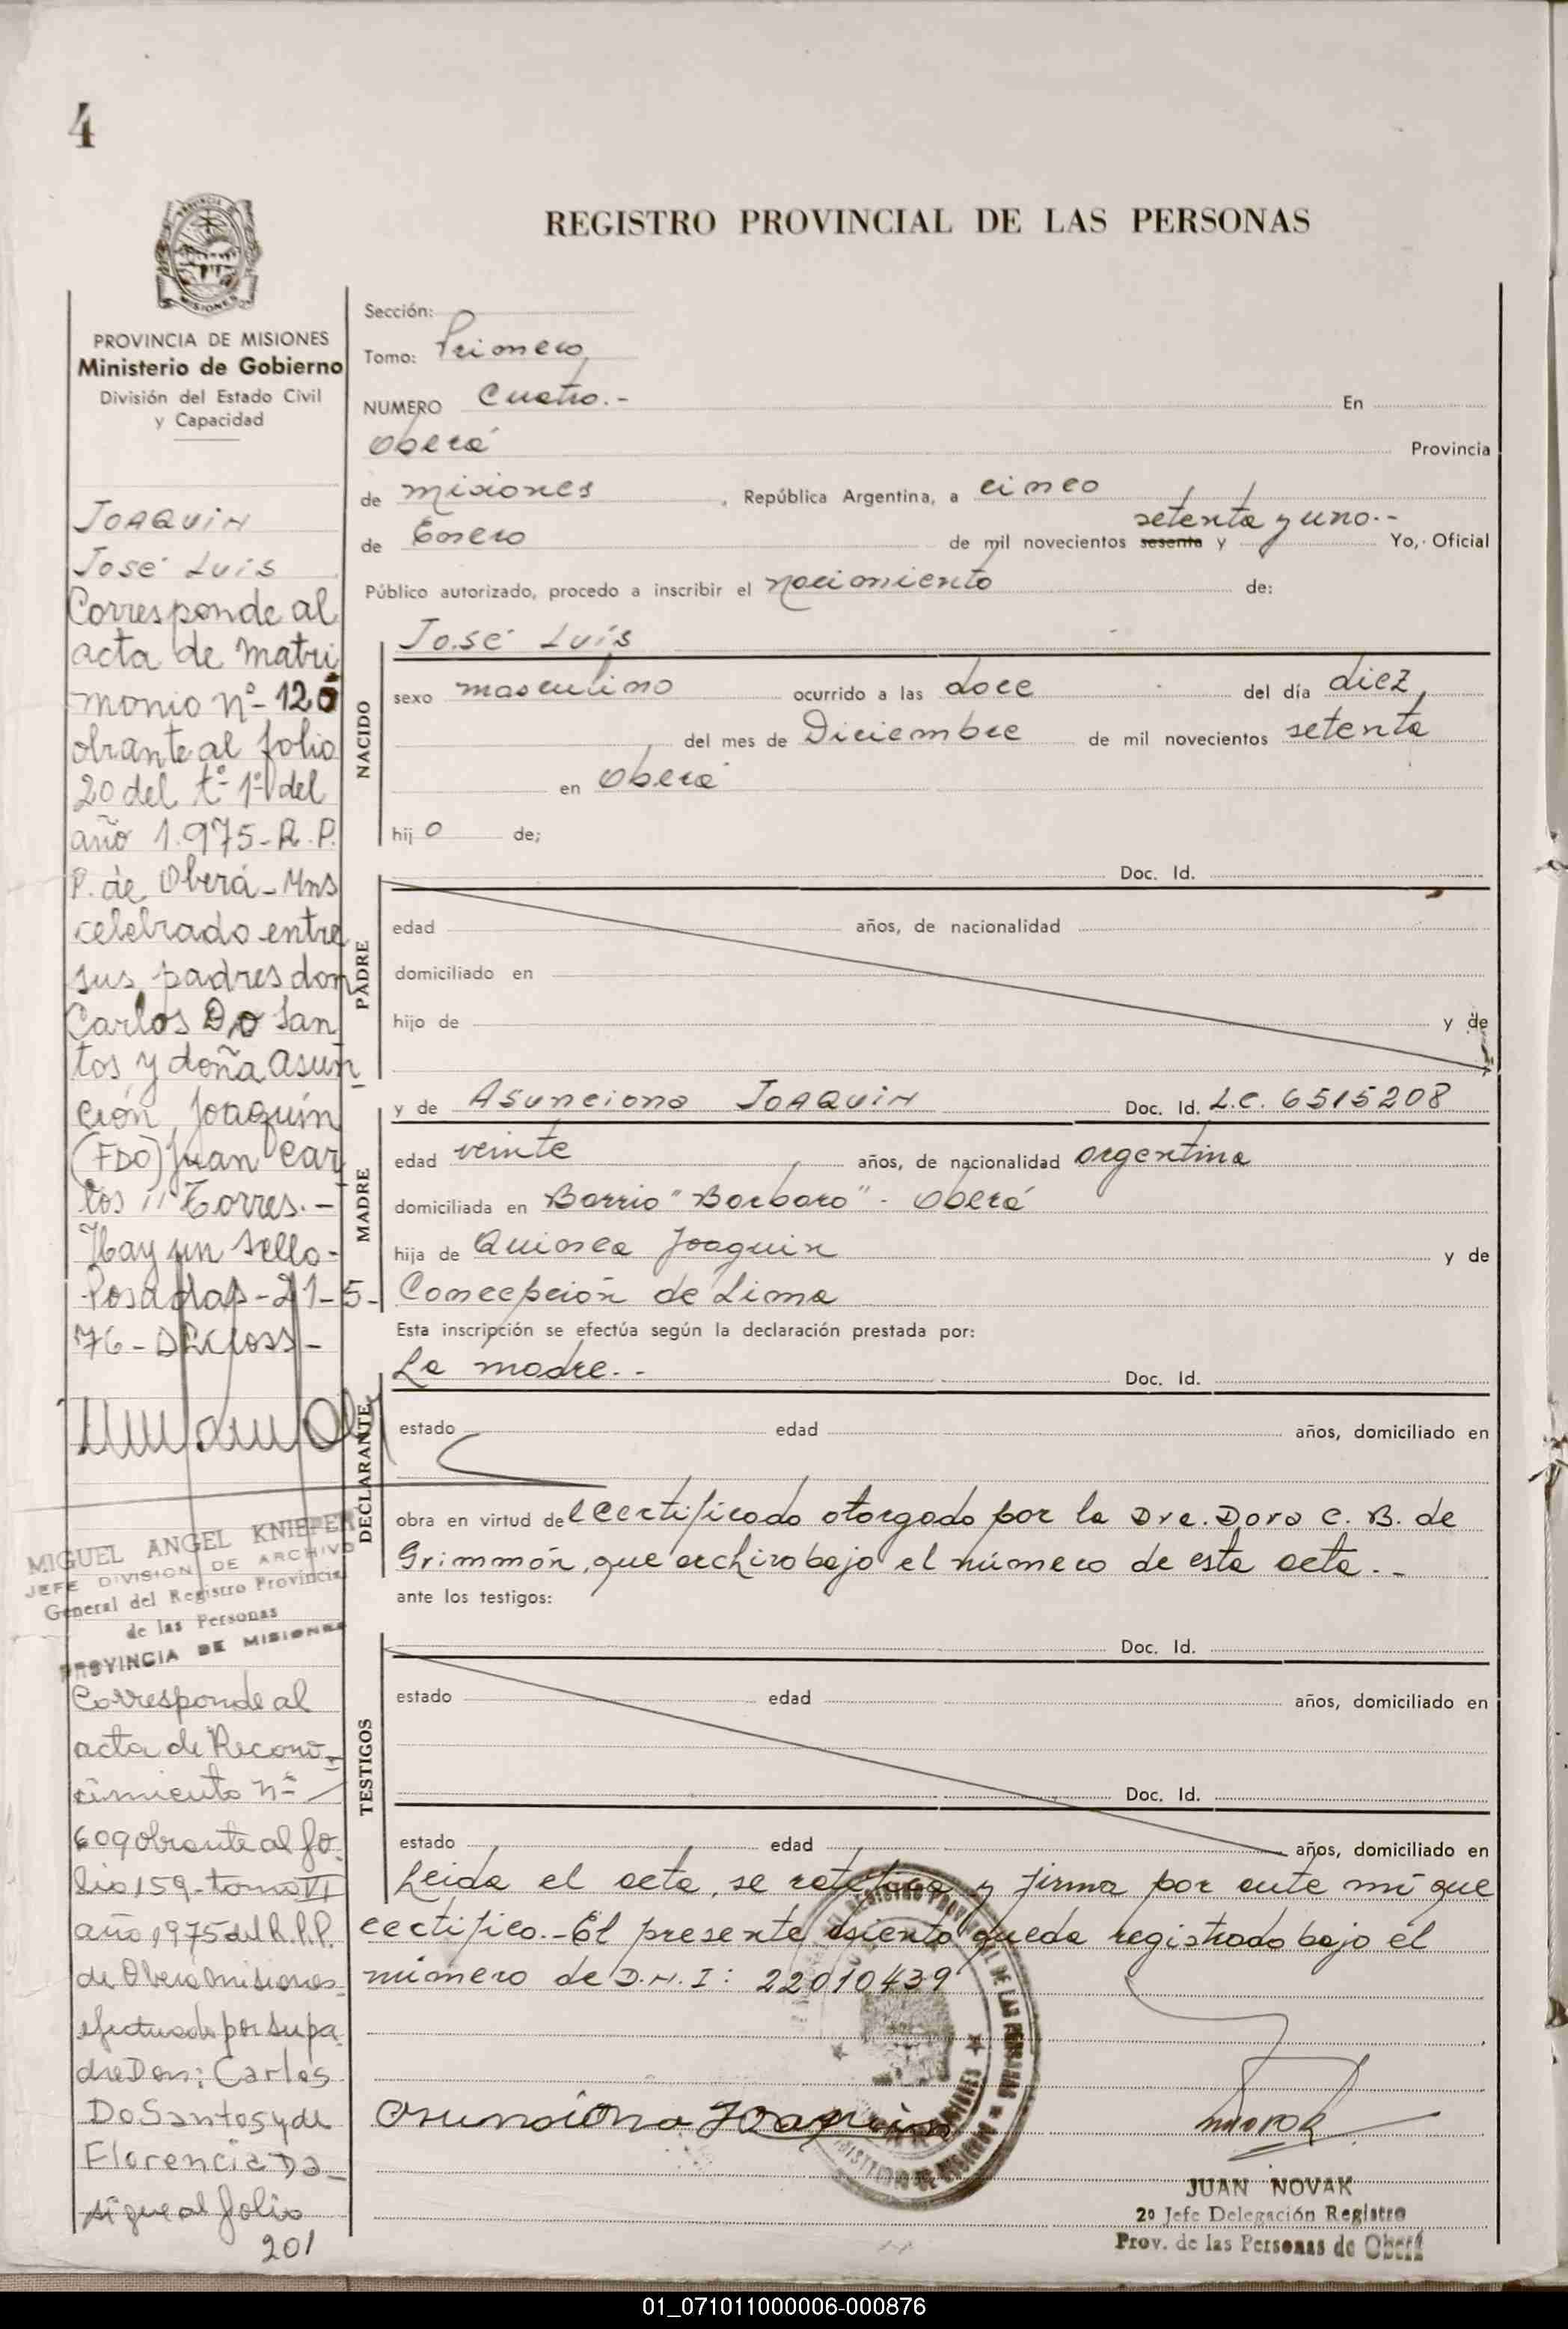 4
REGISTRO PROVINCIAL DE LAS PERSONAS
PROVINCIA DE MISIONES
Ministerio de Gobierno
División del Estado Civil
y Capacidad
JOAQUIN
José Luis
Corresponde al
acta de matri
monio nº- 120
obrante al folio
20 del tº- 1º del
año 1.975- R.P.
P. de Oberá - Mns
celebrado entre
sus padres don
Carlos Do San
tos y doña Asun
ción Joaquín
(FDO) Juan Car
los Torres.-
Hay un sello-
Posadas-21-5-
76-
MIGUEL ANGEL KNIEPER
JEFE DIVISION DE ARCHIVO
General del Registro Provincial
de las Personas
PROVINCIA DE MISIONES
Corresponde al
acta de Recono-
cimiento nº-
609 obrante al fo-
lio 159-tomo VI
año 1975 del R.P.P.
de Oberá Misiones
efectuado por su pa-
dre Don: Carlos
Do Santos y de
Florencia Da
sigue al folio
201
Sección:
Tomo: Primero
NUMERO Cuatro.- En
Oberá Provincia
de Misiones, República Argentina, a cinco
de Enero de mil novecientos sesenta y setenta y uno.- Yo, Oficial
Público autorizado, procedo a inscribir el nacimiento de:
NACIDO
José Luis
sexo masculino ocurrido a las doce del día diez
del mes de Diciembre de mil novecientos setenta
en Oberá
hijo de;
PADRE
Doc. Id.
edad años, de nacionalidad
domiciliado en
hijo de y de
MADRE
y de Asunciona JOAQUIN Doc. Id. L.C. 6515208
edad veinte años, de nacionalidad argentina
domiciliada en Barrio "Barbaro" - Oberá
hija de Joaquin y de
Concepción de Lima
Esta inscripción se efectúa según la declaración prestada por:
DECLARANTE
La madre.- Doc. Id.
estado edad años, domiciliado en
obra en virtud del certificado otorgado por la Dra. Dora C. B. de
Grimmón, que archivo bajo el número de esta acta.-
ante los testigos:
TESTIGOS
Doc. Id.
estado edad años, domiciliado en
Doc. Id.
estado edad años, domiciliado en
Leida el acta, se ratifica y firma por ante mí que
certifico.- El presente asiento queda registrado bajo el
número de D.N.I: 22010439
Asunciona Joaquina
JUAN NOVAK
2º Jefe Delegación Registro
Prov. de las Personas de Oberá
01_071011000006-000876